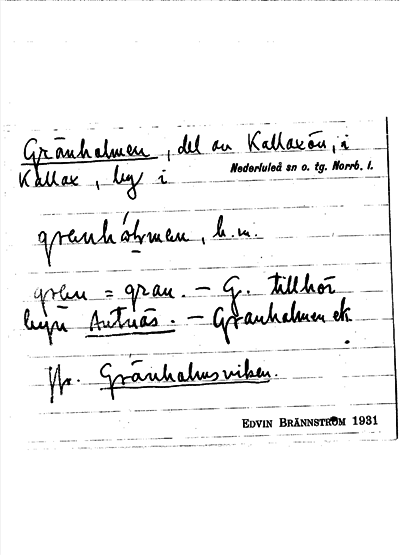 Gränholmen, del av Kallaxön, i
Kallax, by i Nederluleå sn o. tg. Norrb. l.
grenhólmen, b.m.
gren = gran. – G. tillhör
byn Antnäs. – Granholmen ek.
Jfr. Gränholmsviken.
EDVIN BRÄNNSTRÖM 1931